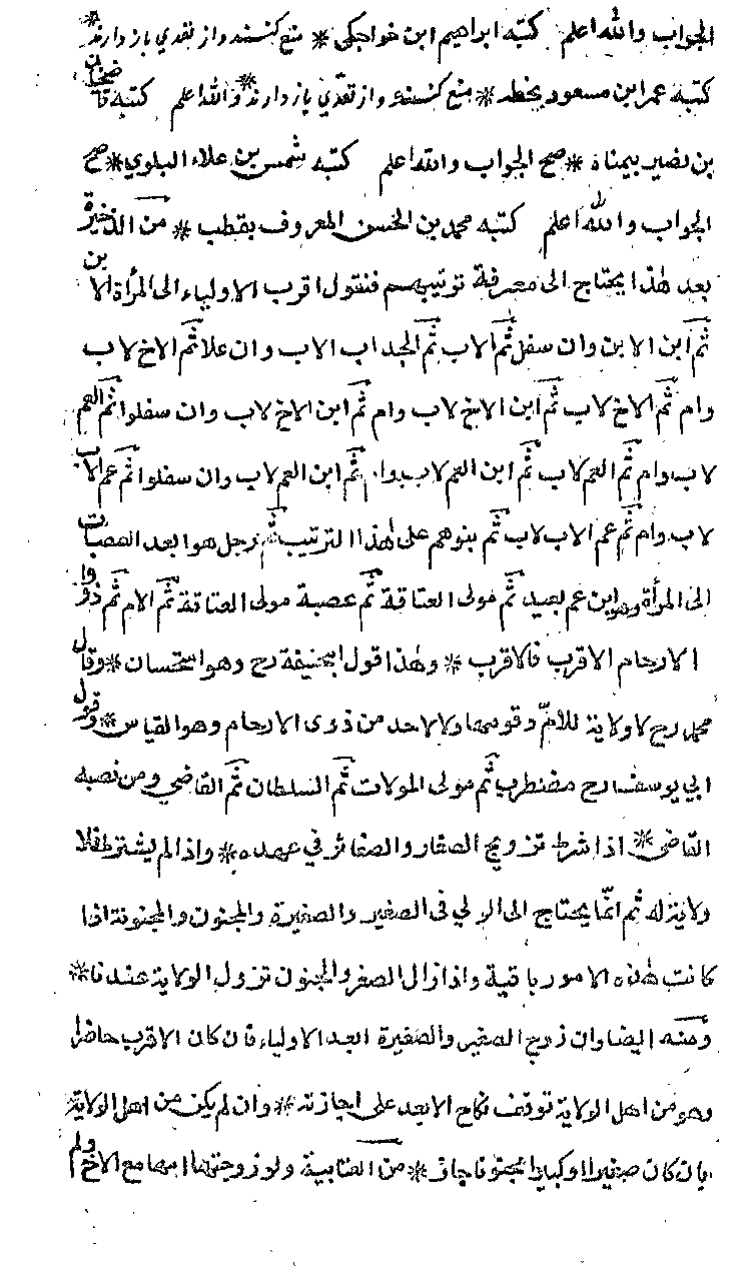 الجواب والله اعلم كتبه ابراهيم ابن خواجكى * منع كنند واز تعدي باز دارند *
كتبه عمر ابن مسعود بخطه * منع كنند واز تعدّي باز دارند * والله اعلم كتبه قاضيخان
بن نصير بيمناه * صح الجواب والله اعلم كتبه شمس بن علاء البلوي * صح
الجواب والله اعلم كتبه محمد بن الحسن المعروف بقطب * من الذخيرة
بعد هذا يحتاج الى معرفة ترتيبهم فنقول اقرب الاولياء الى المرأة الابن
ثم ابن الابن وان سفل ثم الاب ثم الجد اب الاب وان علا ثم الاخ لاب
وام ثم الاخ لاب ثم ابن الاخ لاب وام ثم ابن الاخ لاب وان سفلوا ثم العم
لاب وام ثم العم لاب ثم ابن العم لاب وام ثم ابن العم لاب وان سفلوا ثم عم الاب
لاب وام ثم عم الاب لاب ثم بنوهم على هذا الترتيب ثم رجل هو ابعد العصبات
الى المرأة وهو ابن عم بعيد ثم مولى العتاقة ثم عصبة مولى العتاقة ثم الام ثم ذووا
الارحام الاقرب فالاقرب * وهذا قول ابيحنيفة رح وهو استحسان * وقال
محمد رح لا ولاية للامّ وقومها ولا لاحد من ذوى الارحام وهو القياس * وقول
ابي يوسف رح مضطرب ثم مولى المولات ثم السلطان ثم القاضي ومن نصبه
القاضى * اذا شرط تزويج الصغار والصغائر في عهده * واذا لم يشترط فلا
ولاية له ثم انّما يحتاج الى الولي فى الصغير والصغيرة والمجنون والمجنونة اذا
كانت هذه الامور باقية واذا زال الصغر والجنون تزول الولاية عندنا *
ومنه ايضا وان زوج الصغير والصغيرة ابعد الاولياء فان كان الاقرب حاضرا
وهو من اهل الولاية توقف نكاح الابعد على اجازته * وان لم يكن من اهل الولاية
بان كان صغيرا او كبيرا مجنونا جاز * من العتابية ولو زوجتها امها مع الاخ ولم